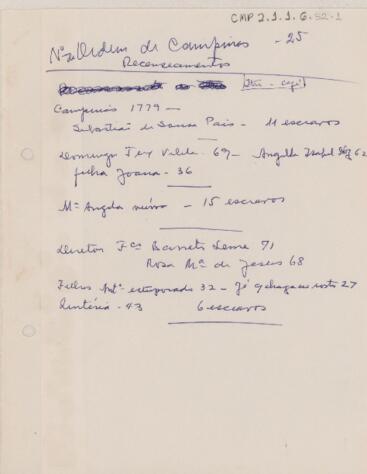 CMP 2.1.1.6.52-1
Nº de Ordem de Campinas - 25
Recenseamentos
Campinas 1779 —
Sebastião de Sousa Pais - 11 escravos
Domingos Teix Vilela 69 - Angela Isabel 62
filha Joana - 36
Mª Angela - 15 escravos
Diretor Fco Barreto Leme 71
Rosa Mª de Jesus 68
Filhos Antº estuporado 32 - 27
Quitéria - 43 6 escravos